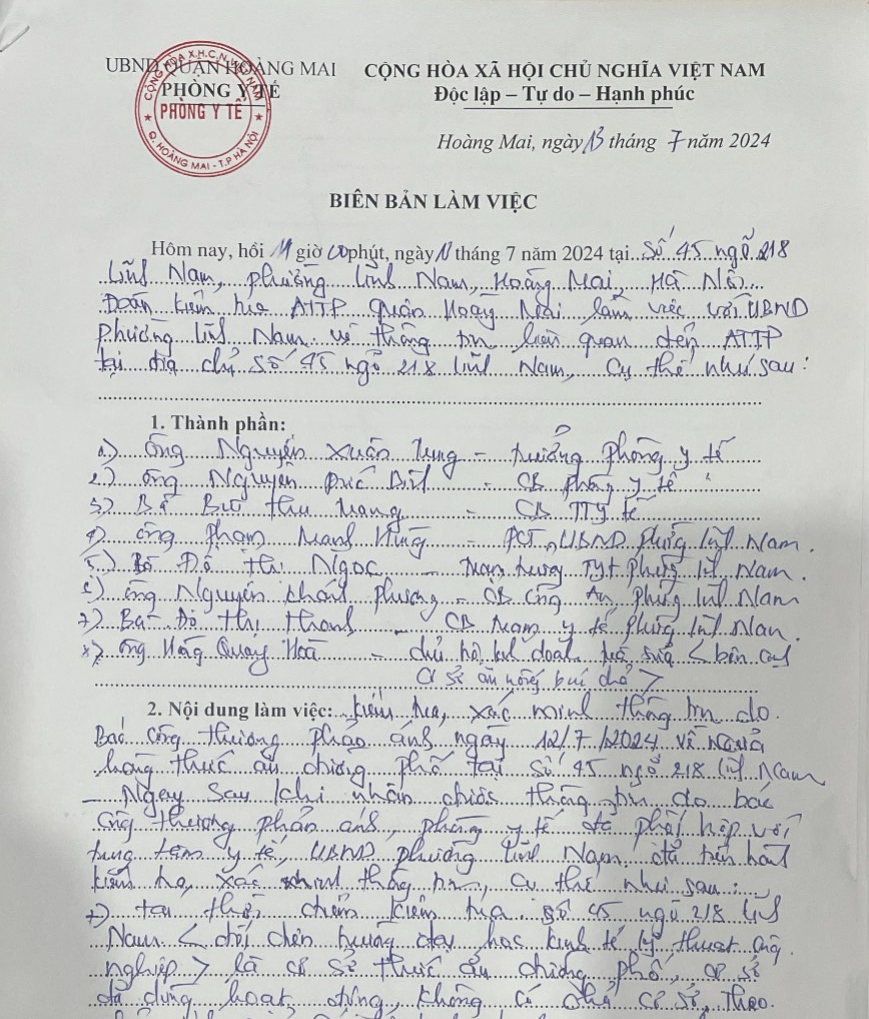 UBND QUẬN HOÀNG MAI
PHÒNG Y TẾ
CỘNG HÒA X.H.C.N VIỆT NAM
PHÒNG Y TẾ
Q. HOÀNG MAI - T.P HÀ NỘI
CỘNG HÒA XÃ HỘI CHỦ NGHĨA VIỆT NAM
Độc lập – Tự do – Hạnh phúc
Hoàng Mai, ngày 13 tháng 7 năm 2024
BIÊN BẢN LÀM VIỆC
Hôm nay, hồi giờ 00 phút, ngày tháng 7 năm 2024 tại Số 45 ngõ 218
Lĩnh Nam, phường Lĩnh Nam, Hoàng Mai, Hà Nội.
Đoàn kiểm tra ATTP quận Hoàng Mai làm việc với UBND
Phường Lĩnh Nam về thông tin liên quan đến ATTP
tại địa chỉ số 45 ngõ 218 Lĩnh Nam, Cụ thể như sau:
1. Thành phần:
1) Ông Nguyễn Xuân - trưởng phòng y tế
2) Ông Nguyễn - CB phòng y tế
3) Bà Bùi Thu Trang - CB TTY tế
4) Ông Phạm Mạnh Hùng - PCT UBND phường Lĩnh Nam.
5) Bà Đỗ Thị Ngọc - trạm trưởng TYT phường Lĩnh Nam.
6) Ông Nguyễn Phương - CB Công An phường Lĩnh Nam
7) Bà Đỗ Thị - CB trạm y tế phường Lĩnh Nam.
8) Ông Quang Hoà - chủ hộ kinh doanh < bên cạnh
cơ sở ăn uống >
2. Nội dung làm việc: kiểm tra, xác minh thông tin do
Báo công thương phản ánh ngày 12/7/2024 về
hàng thức ăn đường phố tại số 45 ngõ 218 Lĩnh Nam
- Ngay sau khi nhận được thông tin do báo
công thương phản ánh, phòng y tế đã phối hợp với
trung tâm y tế, UBND phường Lĩnh Nam đã tiến hành
kiểm tra, xác minh thông tin, cụ thể như sau:
+) tại thời điểm kiểm tra số 45 ngõ 218 Lĩnh
Nam < đối diện trường đại học kinh tế kỹ thuật công
nghiệp > là cơ sở thức ăn đường phố, cơ sở
đã dừng hoạt động, không có chủ cơ sở, theo